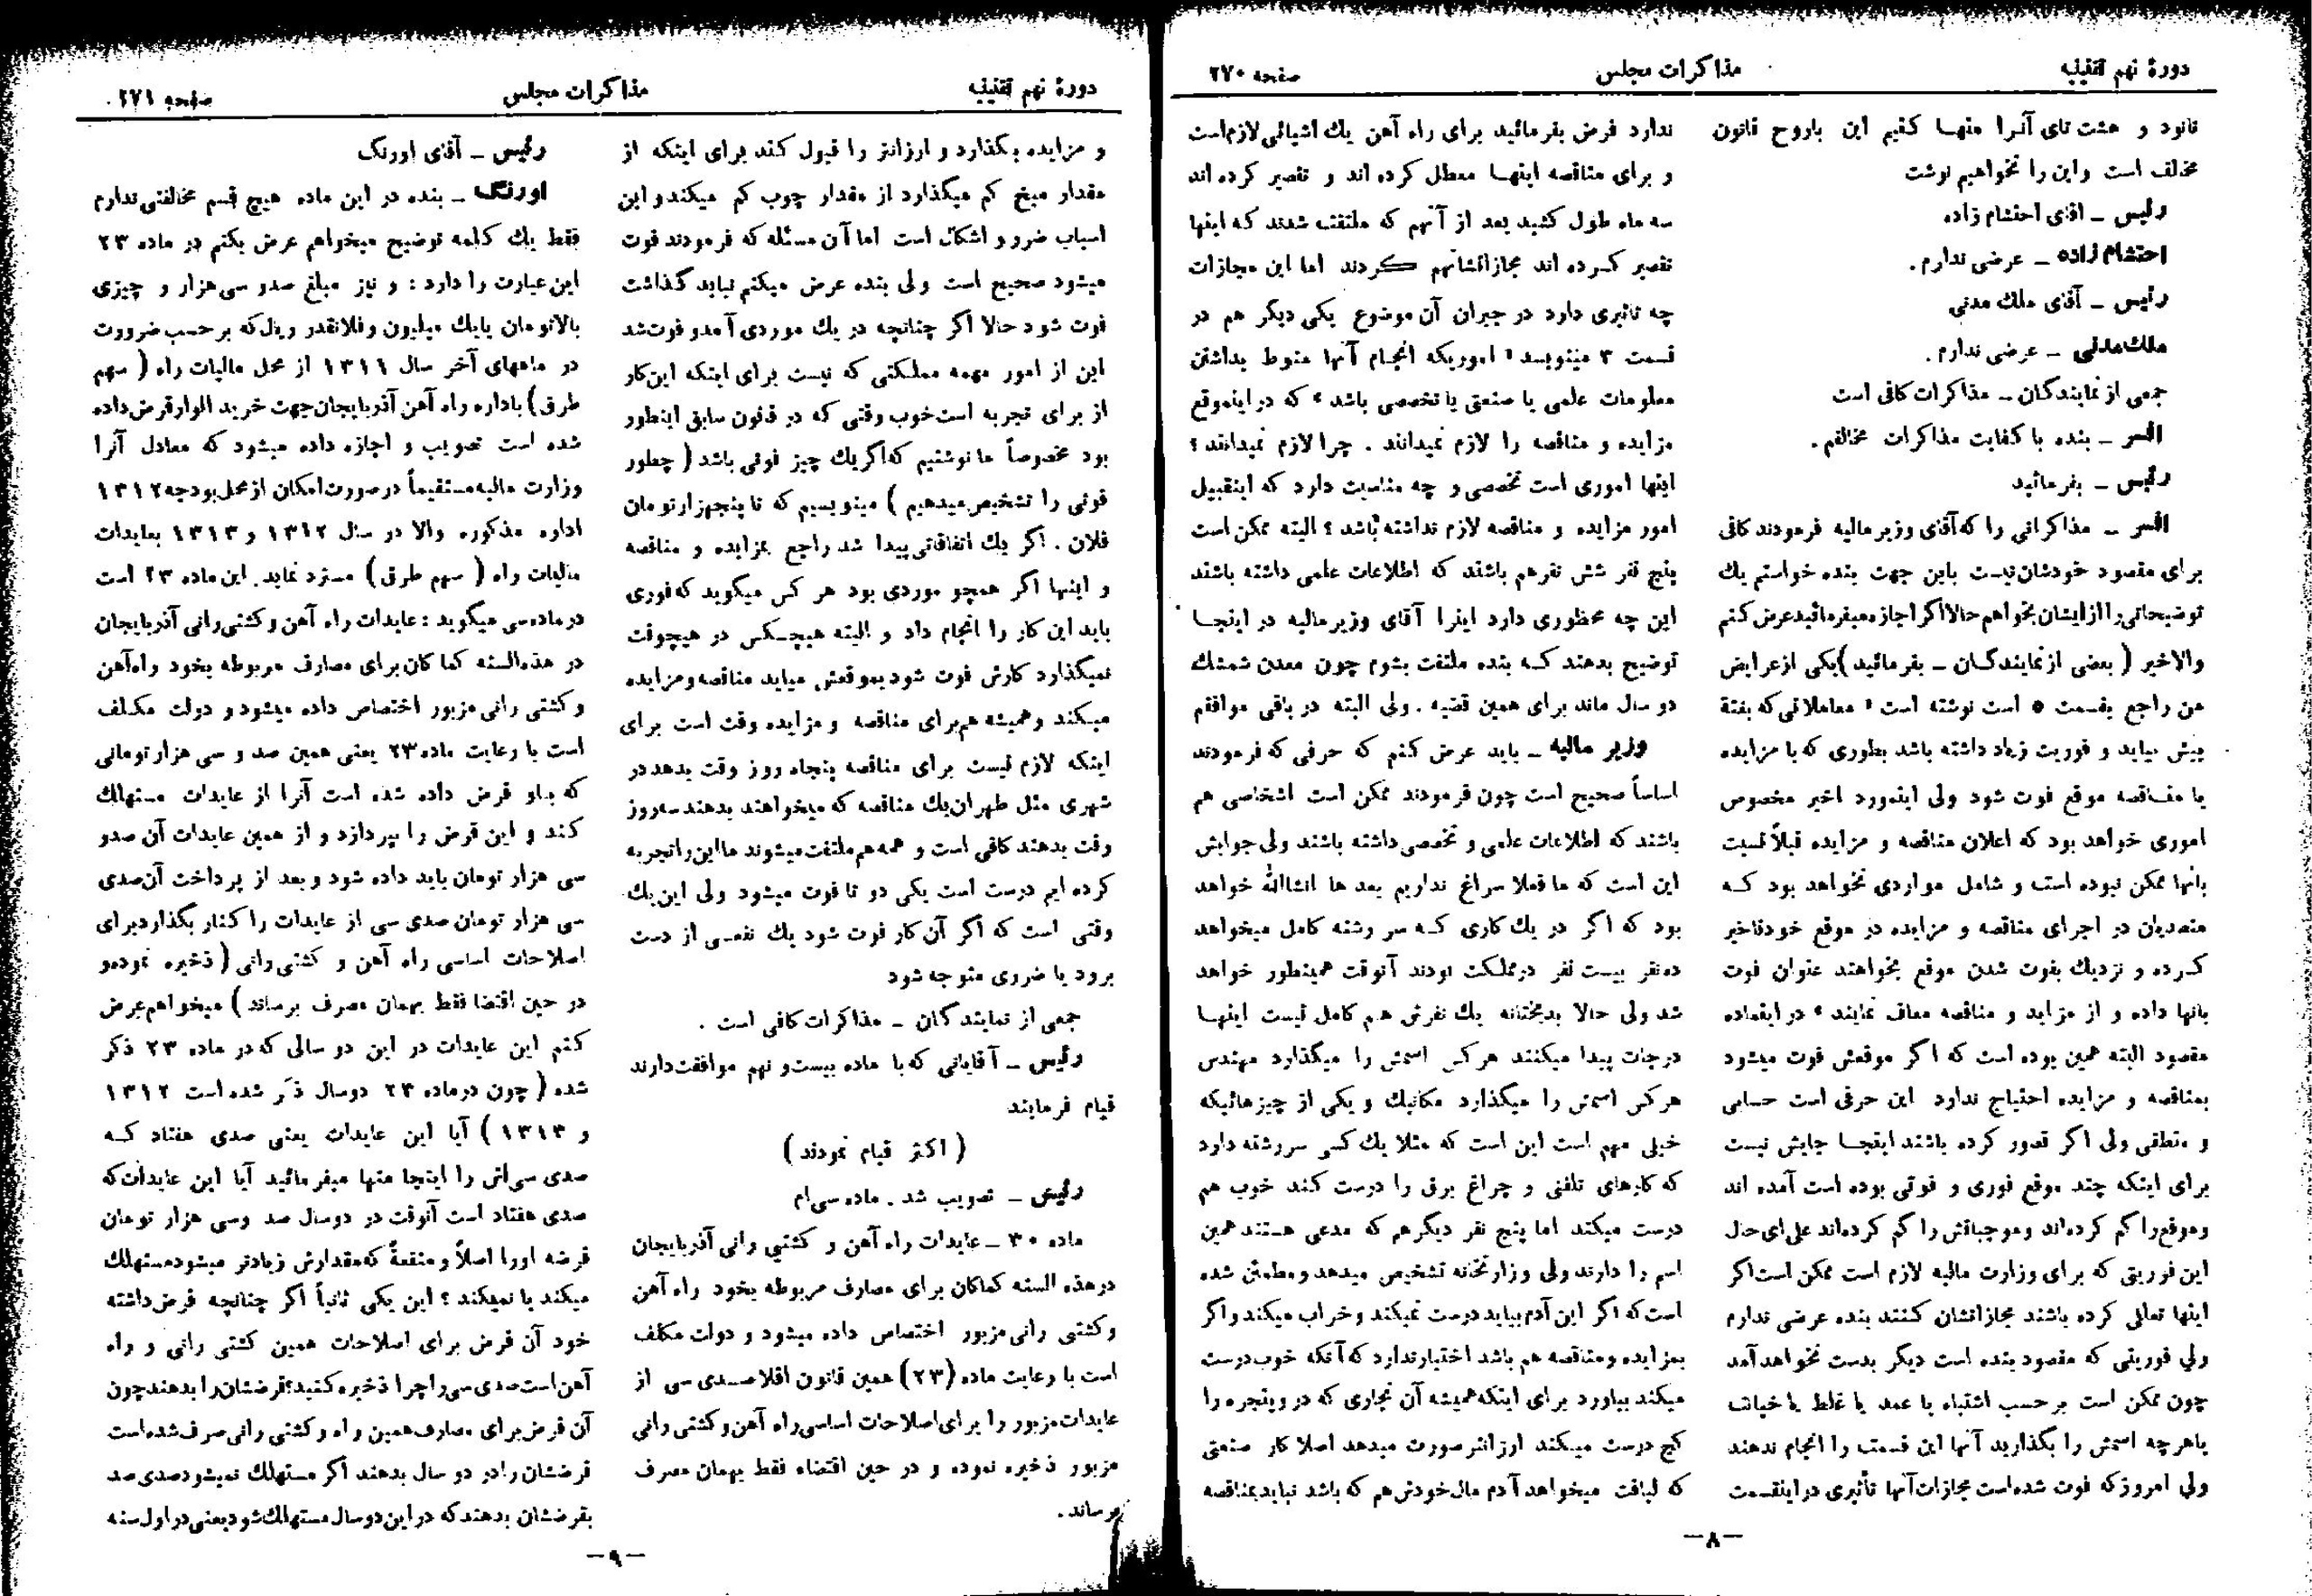 دورهٔ نهم تقنینیه
مذاکرات مجلس
صفحه ۲۷۰
نانود و هشت تای آنرا منهـا کنیم این باروح قانون
مخالف است و این را نخواهیم نوشت
رئیس ـ آقای احتشام زاده
احتشام زاده ـ عرضی ندارم.
رئیس ـ آقای ملك مدنی
ملك مدنی ـ عرضی ندارم.
جمعی از نمایندگان ـ مذاکرات کافی است
افسر ـ بنده با کفایت مذاکرات مخالفم.
رئیس ـ بفرمائید
افسر ـ مذاکراتی را که آقای وزیر مالیه فرمودند کافی
برای مقصود خودشان نیست باین جهت بنده خواستم یك
توضیحاتی را از ایشان بخواهم حالا اگر اجازه میفرمائید عرض کنم
والاخیر ( بعضی از نمایندگـان ـ بفرمائید ) یکی از عرایض
من راجع بقسمت ۵ است نوشته است « معاملاتی که بغتة
پیش بیاید و فوریت زیاد داشته باشد بطوری که با مزایده
یا منـاقصه موقع فوت شود ولی اینمورد اخیر مخصوص
اموری خواهد بود که اعلان مناقصه و مزایده قبلاً نسبت
بآنها ممکن نبوده است و شامل مواردی نخواهد بود کـه
متصدیان در اجرای مناقصه و مزایده در موقع خود تاخیر
کـرده و نزدیك بفوت شدن موقع بخواهند عنوان فوت
بآنها داده و از مزاید و مناقصه معاف نمایند » در اینماده
مقصود البته همین بوده است که اگر موقعش فوت میشود
بمناقصه و مزایده احتیاج ندارد این حرفی است حسابی
و منطقی ولی اگر تصور کرده باشند اینجـا جایش نیست
برای اینکه چند موقع فوری و فوتی بوده است آمده اند
و موقع را گم کرده‌اند و موجباتش را گم کرده‌اند علی‌ای‌حال
این فوریتی که برای وزارت مالیه لازم است ممکن است اگر
اینها تعللی کرده باشند مجازاتشان کنند بنده عرضی ندارم
ولی فوریتی که مقصود بنده است دیگر بدست نخواهد آمد
چون ممکن است بر حسب اشتباه یا عمد یا غلط یا خیانت
یا هر چه اسمش را بگذارید آنها این قسمت را انجام ندهند
ولی امروز که فوت شده است مجازات آنها تأثیری در اینقسمت
ندارد فرض بفرمائید برای راه آهن یك اشیائی لازم است
و برای مناقصه اینهـا معطل کرده اند و تقصیر کرده اند
سه ماه طول کشید بعد از آنهم که ملتفت شدند که اینها
تقصیر کـرده اند مجازاتشانهم کردند اما این مجازات
چه تاثیری دارد در جبران آن موضوع یکی دیگر هم در
قسمت ۳ مینویسد « اموریکه انجام آنها منوط بداشتن
معلومات علمی یا صنعتی یا تخصصی باشد » که در اینموقع
مزایده و مناقصه را لازم نمیدانند . چرا لازم نمیدانند ؟
اینها اموری است تخصصی و چه مناسبت دارد که اینقبیل
امور مزایده و مناقصه لازم نداشته باشد ؟ البته ممکن است
پنج نفر شش نفر هم باشند که اطلاعات علمی داشته باشند
این چه محظوری دارد اینرا آقای وزیر مالیه در اینجـا
توضیح بدهند کـه بنده ملتفت بشوم چون معدن شمشك
دو سال ماند برای همین قضیه . ولی البته در باقی موافقم
وزیر مالیه ـ باید عرض کنم که حرفی که فرمودند
اساساً صحیح است چون فرمودند ممکن است اشخاصی هم
باشند که اطلاعات علمی و تخصصی داشته باشند ولی جوابش
این است که ما فعلا سراغ نداریم بعد ها انشاالله خواهد
بود که اگر در یك کاری کـه سر رشته کامل میخواهد
ده نفر بیست نفر در مملکت بودند آنوقت همینطور خواهد
شد ولی حالا بدبختانه یك نفرش هم کامل نیست اینهـا
درجات پیدا میکنند هر کس اسمش را میگذارد مهندس
هر کس اسمش را میگذارد مکانیك و یکی از چیزهائیکه
خیلی مهم است این است که مثلا یك کسی سر رشته دارد
که کارهای تلفنی و چراغ برق را درست کند خوب هم
درست میکند اما پنج نفر دیگر هم که مدعی هستند همین
اسم را دارند ولی وزارتخانه تشخیص میدهد و مطمئن شده
است که اگر این آدم بیاید درست نمیکند و خراب میکند و اگر
بمزایده و مناقصه هم باشد اختیار ندارد که آنکه خوب درست
میکند بیاورد برای اینکه همیشه آن نجاری که در و پنجره را
کج درست میکند ارزانتر صورت میدهد اصلا کار صنعتی
که لیاقت میخواهد آدم مال خودش هم که باشد نباید بمناقصه
ـ۸ـ
دورهٔ نهم تقنینیه
مذاکرات مجلس
صفحه ۲۷۱
و مزایده بگذارد و ارزانتر را قبول کند برای اینکه از
مقدار میخ کم میگذارد از مقدار چوب کم میکند و این
اسباب ضرر و اشکال است اما آن مسئله که فرمودند فوت
میشود صحیح است ولی بنده عرض میکنم نباید گذاشت
فوت شود حالا اگر چنانچه در یك موردی آمد و فوت شد
این از امور مهمه مملکتی که نیست برای اینکه این کار
از برای تجربه است خوب وقتی که در قانون سابق اینطور
بود مخصوصاً ما نوشتیم که اگر یك چیز فوتی باشد ( چطور
فوتی را تشخیص میدهیم ) مینویسیم که تا پنجهزار تومان
فلان . اگر یك اتفاقاتی پیدا شد راجع بمزایده و مناقصه
و اینها اگر همچو موردی بود هر کس میگوید که فوری
باید این کار را انجام داد و البته هیچـکس در هیچوقت
نمیگذارد کارش فوت شود بموقعش میاید مناقصه و مزایده
میـکند و همیشه هم برای مناقصه و مزایده وقت است برای
اینکه لازم نیست برای مناقصه پنجاه روز وقت بدهد در
شهری مثل طهران یك مناقصه که میخواهند بدهند سه روز
وقت بدهند کافی است و همه هم ملتفت میشوند ما این را تجربه
کرده ایم درست است یکی دو تا فوت میشود ولی این یك
وقتی است که اگر آن کار فوت شود یك نفعـی از دست
برود یا ضرری متوجه شود
جمعی از نمایندگان ـ مذاکرات کافی است .
رئیس ـ آقایانی که با ماده بیست و نهم موافقت دارند
قیام فرمایند
( اکثر قیام نمودند )
رئیس ـ تصویب شد . ماده سی‌ام
ماده ۳۰ ـ عایدات راه آهن و کشتی رانی آذربایجان
در هذه السنه کماکان برای مصارف مربوطه بخود راه آهن
و کشتی رانی مزبور اختصاص داده میشود و دولت مکلف
است با رعایت ماده (۲۳) همین قانون اقلا صـدی سی از
عایدات مزبور را برای اصلاحات اساسی راه آهن و کشتی رانی
مزبور ذخیره نموده و در حین اقتضاء فقط بهمان مصرف
برساند .
رئیس ـ آقای اورنگ
اورنگ ـ بنده در این ماده هیچ قسم مخالفتی ندارم
فقط یك کلمه توضیح میخواهم عرض بکنم در ماده ۲۳
این عبارت را دارد : و نیز مبلغ صد و سی هزار و چیزی
بالا تومان یا یك میلیون و فلانقدر ریال که بر حسب ضرورت
در ماههای آخر سال ۱۳۱۱ از محل مالیات راه ( سهم
طرق ) باداره راه آهن آذربایجان جهت خرید الوار قرض داده
شده است تصویب و اجازه داده میشود که معادل آنرا
وزارت مالیه مستقیماً در صورت امکان از محل بودجه ۱۳۱۲
اداره مذکوره والا در سال ۱۳۱۲ و ۱۳۱۳ بعایدات
مالیات راه ( سهم طرق ) مسترد نماید. این ماده ۲۳ است
در ماده سی میگوید : عایدات راه آهن و کشتی رانی آذربایجان
در هذه السنه کما کان برای مصارف مربوطه بخود راه آهن
و کشتی رانی مزبور اختصاص داده میشود و دولت مکلف
است با رعایت ماده ۲۳ یعنی همین صد و سی هزار تومانی
که باو قرض داده شده است آنرا از عایدات مستهلك
کند و این قرض را بپردازد و از همین عایدات آن صد و
سی هزار تومان باید داده شود و بعد از پرداخت آن صدی
سی هزار تومان صدی سی از عایدات را کنار بگذارد برای
اصلاحات اساسی راه آهن و کشتی رانی ( ذخیره نموده و
در حین اقتضا فقط بهمان مصرف برساند ) میخواهم عرض
کنم این عایدات در این دو سالی که در ماده ۲۳ ذکر
شده ( چون در ماده ۲۳ دو سال ذکر شده است ۱۳۱۲
و ۱۳۱۳ ) آیا این عایدات یعنی صدی هفتاد کـه
صدی سی‌اش را اینجا منها میفرمائید آیا این عایدات که
صدی هفتاد است آنوقت در دو سال صد و سی هزار تومان
قرضه او را اصلاً و منفعةً که مقدارش زیادتر میشود مستهلك
میکند یا نمیکند ؟ این یکی ثانیاً اگر چنانچه قرض داشته
خود آن قرض برای اصلاحات همین کشتی رانی و راه
آهن است صدی سی را چرا ذخیره کنید؟ قرضشان را بدهند چون
آن قرض برای مصارف همین راه و کشتی رانی صرف شده است
قرضشان را در دو سال بدهند اگر مستهلك نمیشود صدی صد
بقرضشان بدهند که در این دو سال مستهلك شود یعنی در اول سنه
ـ۹ـ